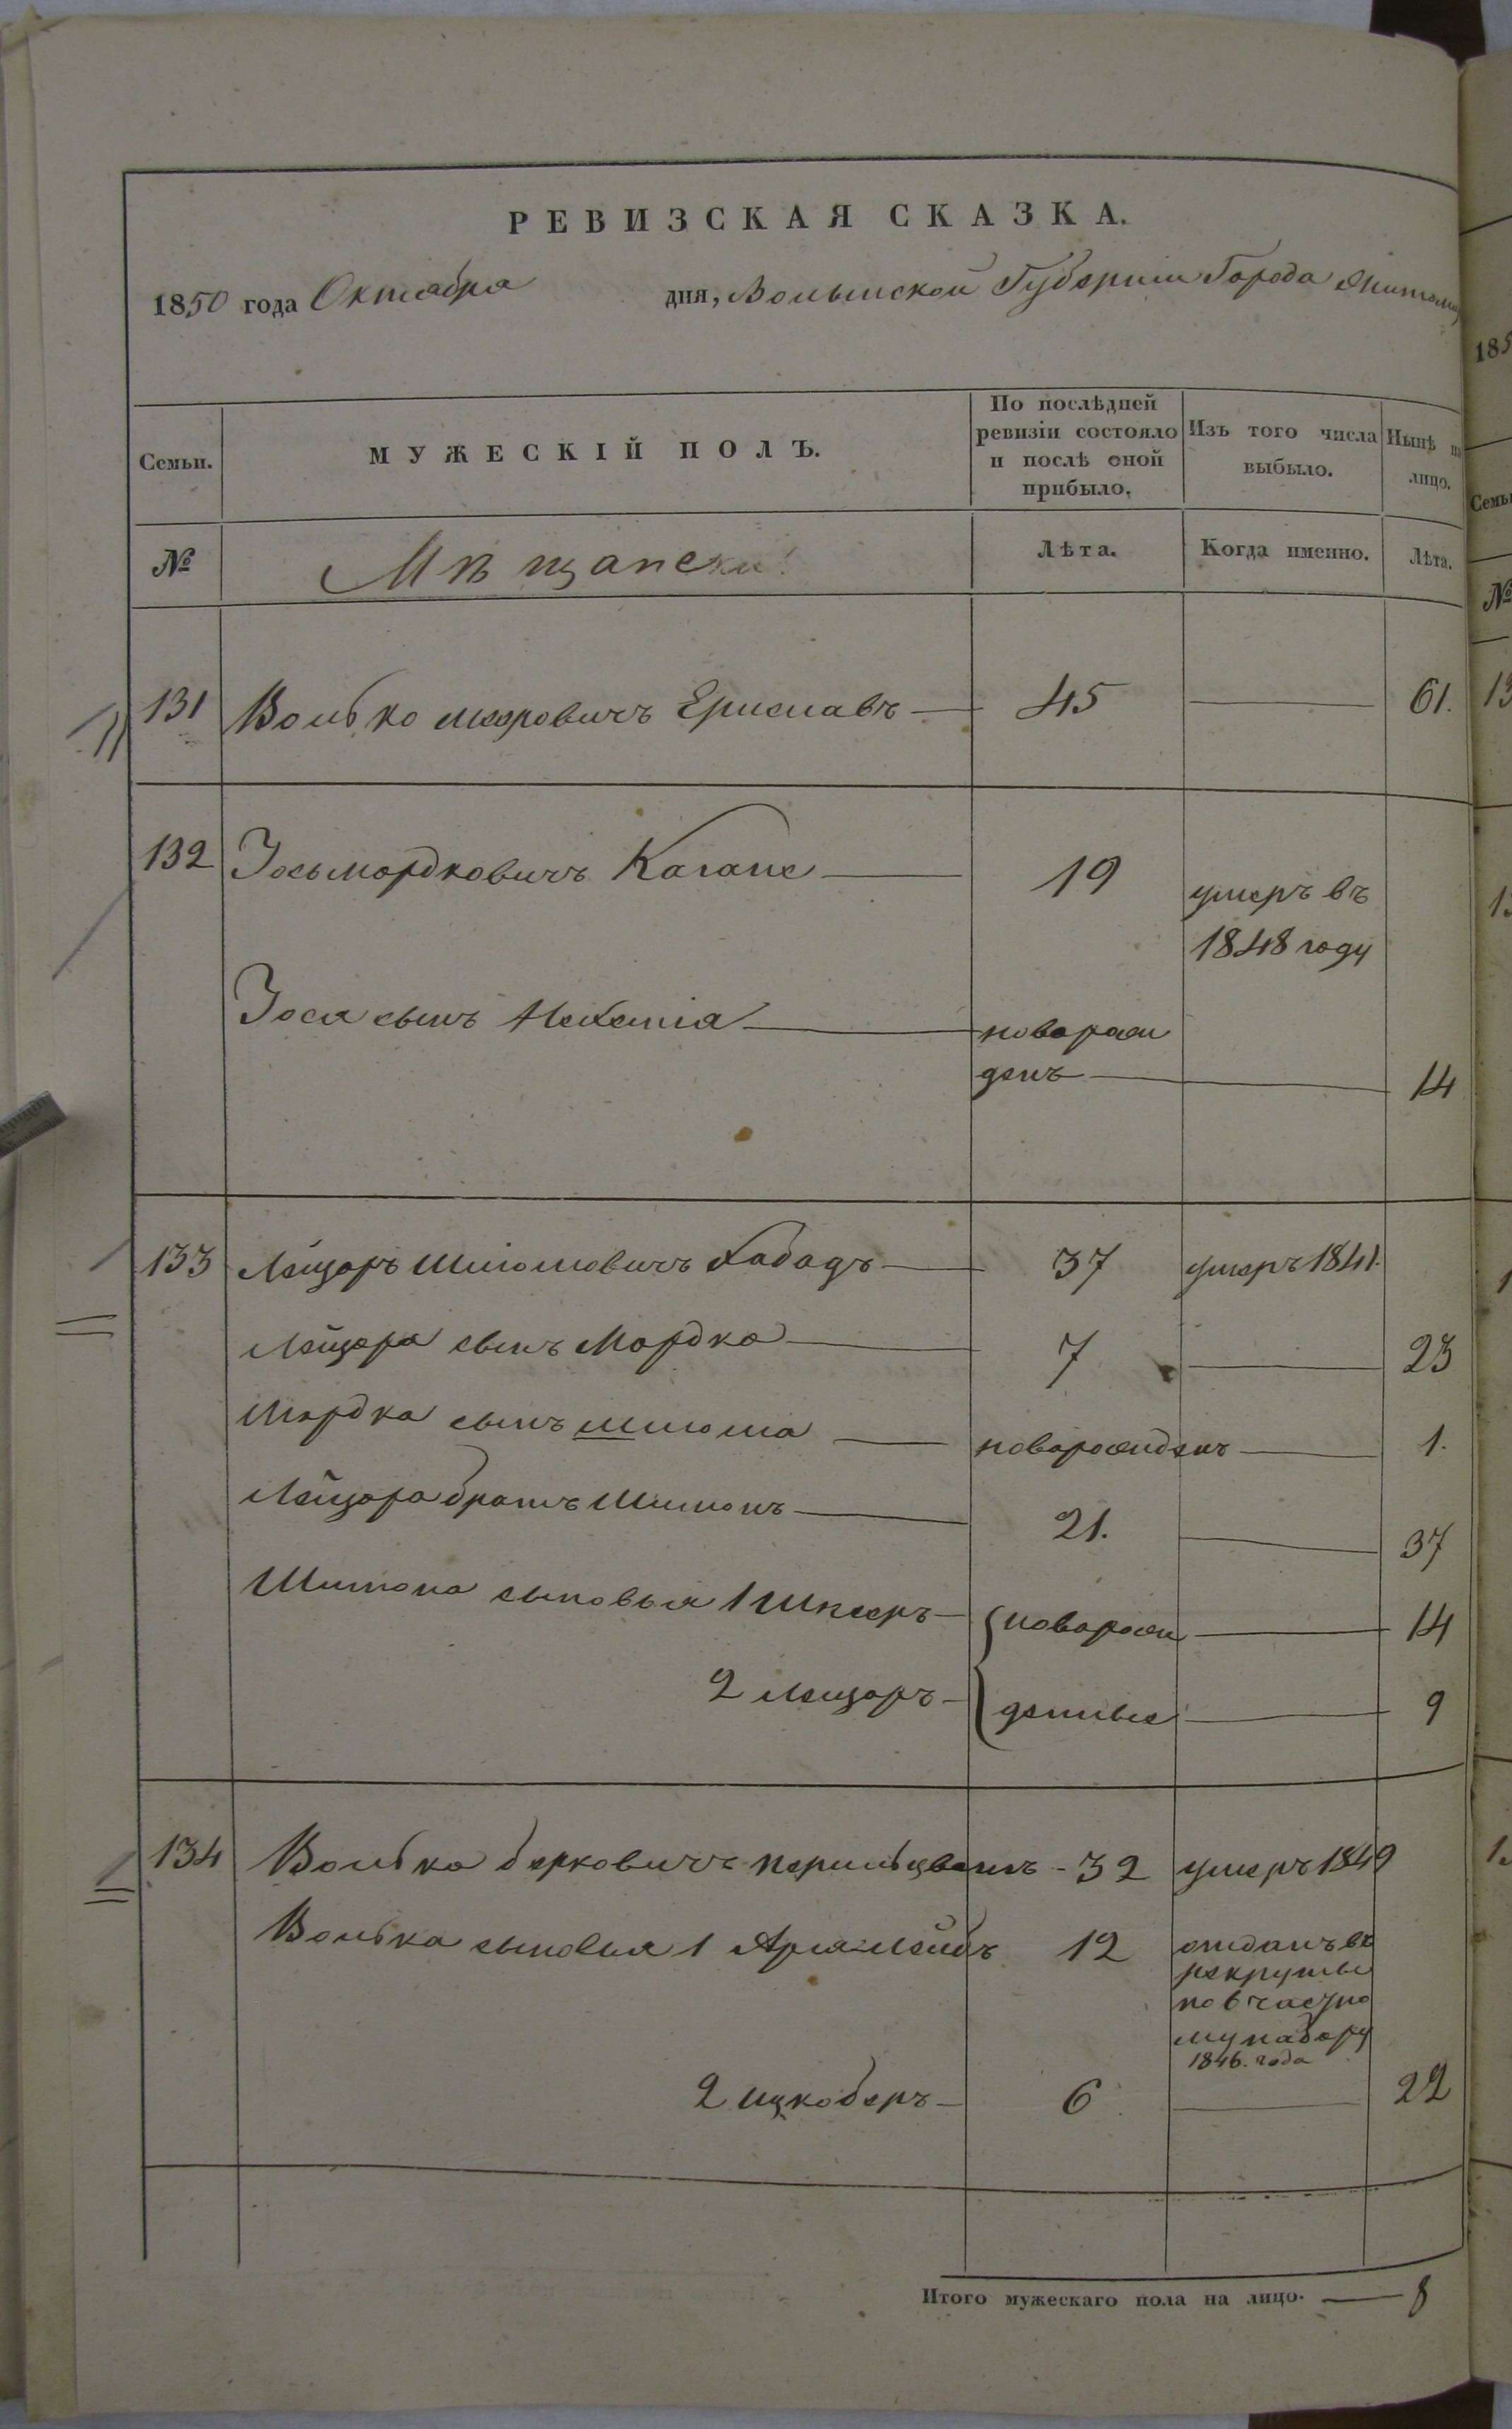 РЕВИЗСКАЯ СКАЗКА.
1850 года Октября дня, Волынской Губерніи Города Житом
Семьи. МУЖЕСКІЙ ПОЛЪ. По послѣдней ревизіи состояло и послѣ оной прибыло. Изъ того числа выбыло. Нынѣ на лицо.
№ Мѣщански Лѣта. Когда именно. Лѣта.
131 Волько Меэровичъ 45 61.
132 Іось Мордковичъ Кагане 19 умеръ въ
1848 году
Іося сынъ новорож
денъ 14
133 Лейзоръ Шліомовичъ Хабадъ 37 умеръ 1841.
Лейзора сынъ Мордко 7 23
Мордка сынъ Шліома новорожденъ 1.
Лейзора братъ Шимонъ 21. 37
Шимона сыновья 1 новорож 14
2 Лейзоръ денные 9
134 Волько Берковичъ 32 умеръ 1849
Волька сыновья 1 Арія Лейбъ 12 отданъ въ
рекруты
по 6 частно
му набору
1846. года
2 Ицко Беръ 6 22
Итого мужескаго пола на лицо. 8
185
Семьи
№